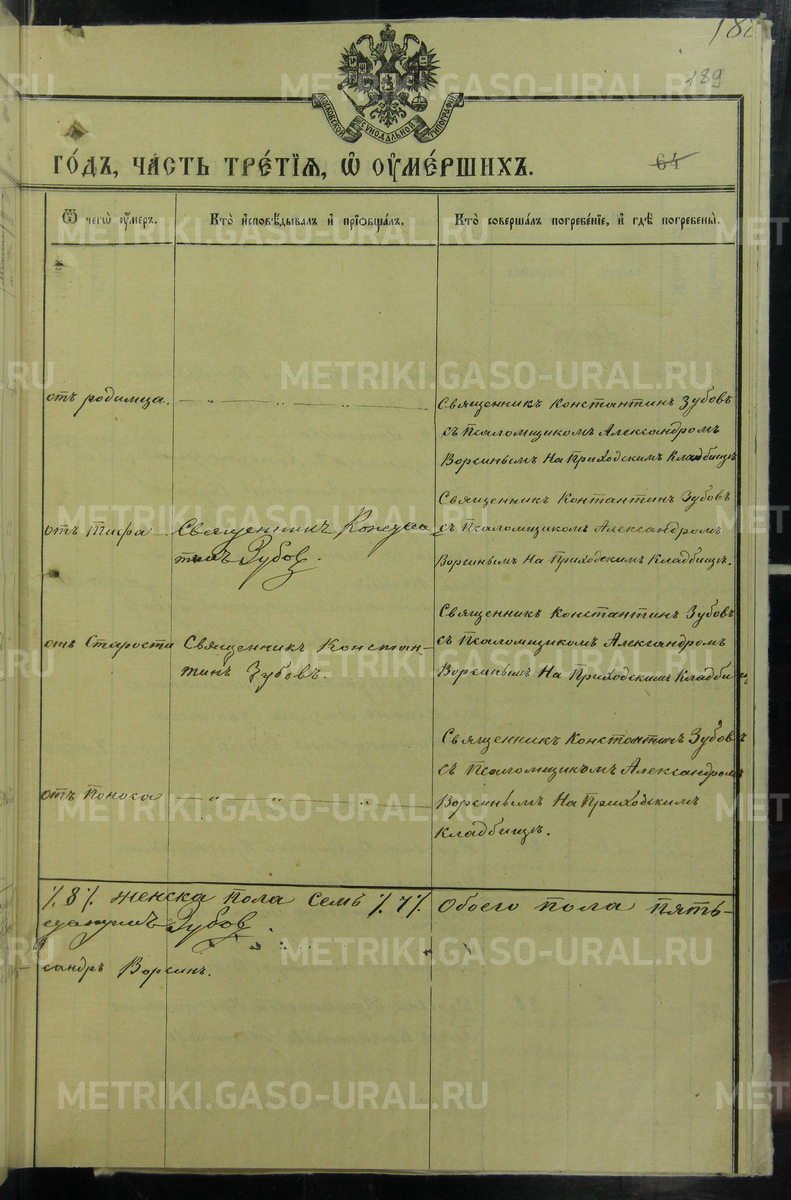 188
189
МОСКОВСКОЙ СѴНОДАЛЬНОЙ ТИПОГРАФІИ
ГО́ДЪ, ЧА́СТЬ ТРЕ́ТІѦ, Ѡ҆ ОУ҆МЕ́РШИХЪ.
64
Ѿ чегѡ̀ оу҆́меръ.
Кто̀ и҆сповѣ́дывалъ и҆ прїѡбща́лъ.
Кто̀ соверша́лъ погребе́нїе, и҆ гдѣ̀ погребены̀.
отъ родимца.
Священникъ Константинъ Зубовъ
съ Псаломщикомъ Александромъ
Ворсинымъ На Приходскимъ Кладбищѣ
отъ тифа
Священникъ Конста
тинъ Зубов.
Священникъ Контантинъ Зубовъ
съ Псаломщикомъ Александромъ
Ворсинымъ На Приходскимъ Кладбищѣ.
отъ Старости
Священникъ Констан-
тинъ Зубовъ.
Священникъ Константинъ Зубовъ
съ Псаломщикомъ Александромъ
Ворсинымъ На Приходскимъ Кладби
отъ Поноса
Священникъ Константинъ Зубовъ
съ Псаломщикомъ Александромъ
Ворсинымъ На Приходскимъ
Кладбищѣ.
%8% женска пола семь %7% Обоего пола пять-
Зубов
сандръ Ворсинъ.
METRIKI.GASO-URAL.RU